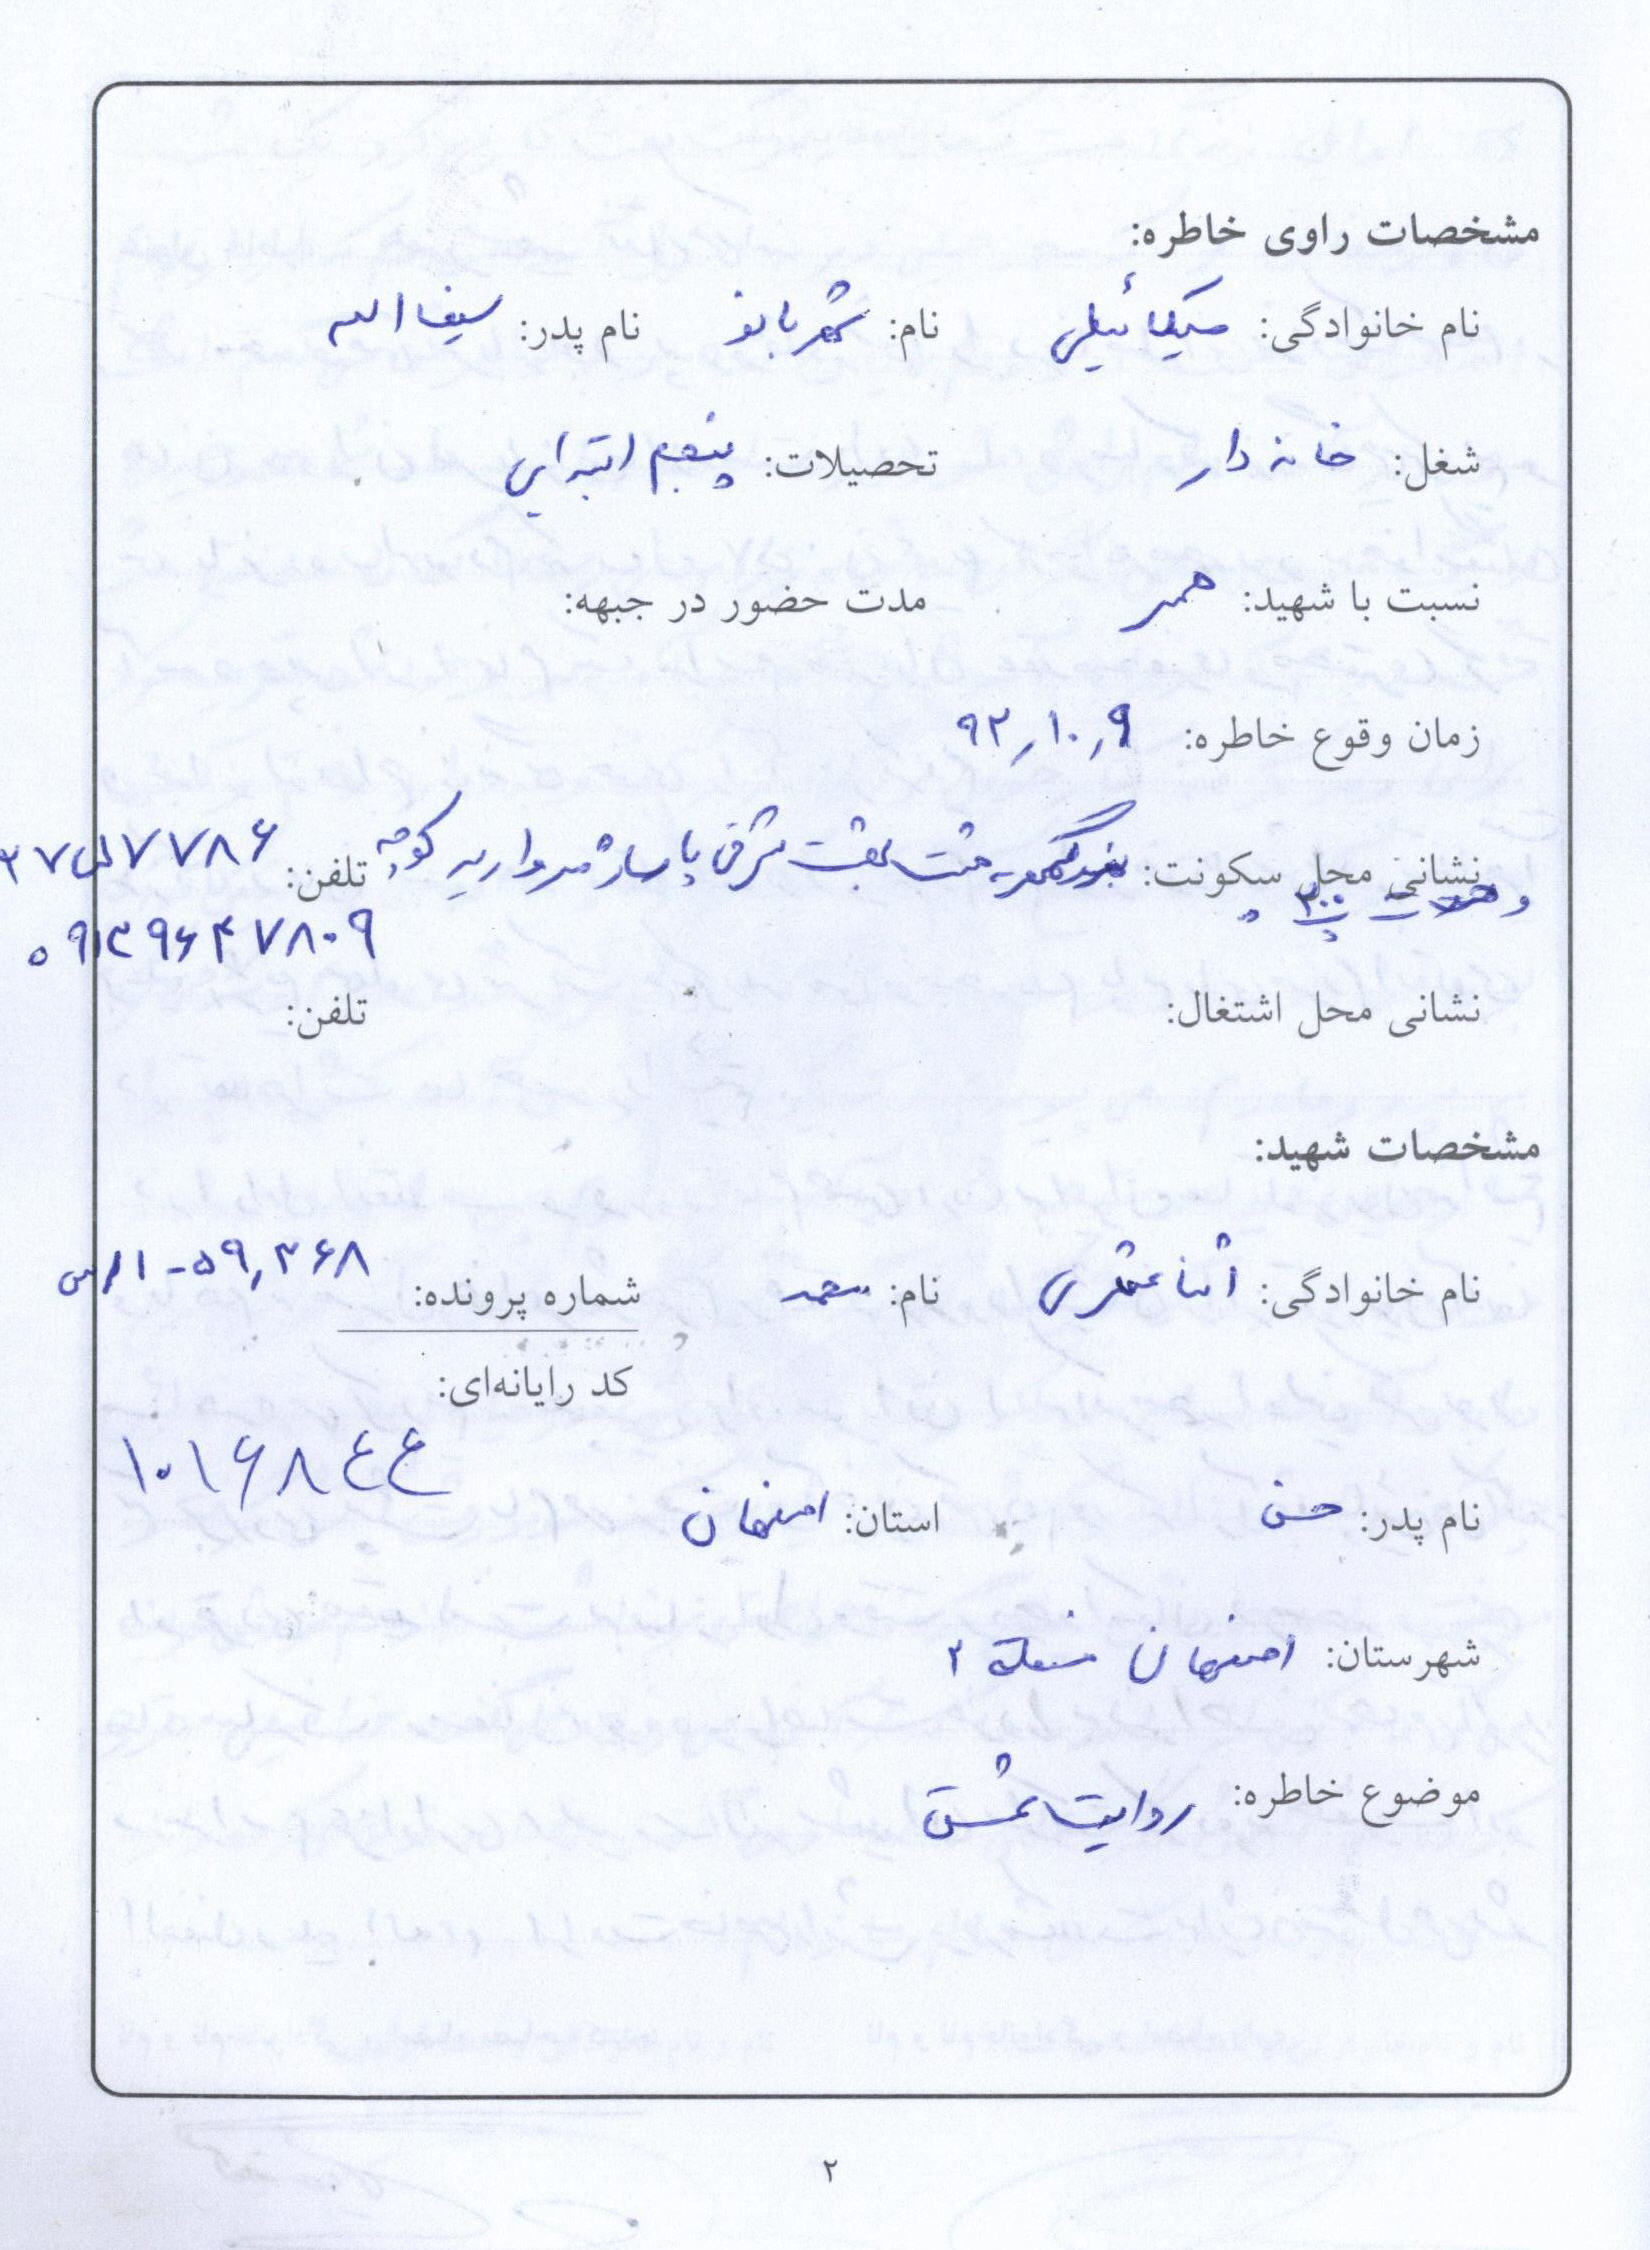 مشخصات راوی خاطره:
نام خانوادگی: میکائیلی نام: شهربانو نام پدر: سیف الله
شغل: خانه دار تحصیلات: پنجم ابتدایی
نسبت با شهید: همسر مدت حضور در جبهه:
زمان وقوع خاطره: ۹۲٫۱۰٫۹
نشانی محل سکونت: بهشت شرقی پاساژ مروارید کوچه تلفن: ۷۷۸۶
وحدت پ ۳۰۰ ۰۹۱۳۹۶۴۷۸۰۹
نشانی محل اشتغال: تلفن:
مشخصات شهید:
نام خانوادگی: اثنا عشری نام: محمد شماره پرونده: ۵۹٫۳۶۸-۱
کد رایانه‌ای:
۱۰۱۶۸۴۴
نام پدر: حسن استان: اصفهان
شهرستان: اصفهان منطقه ۲
موضوع خاطره: روایت عشق
۲